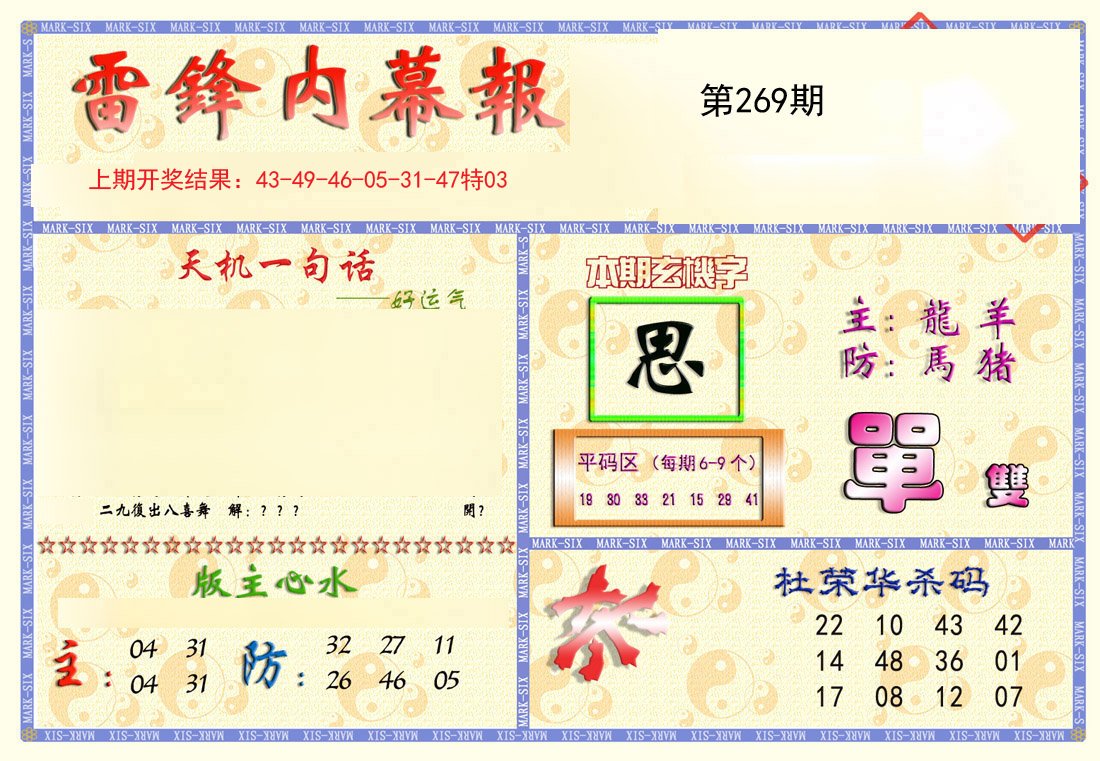 雷鋒内幕報
第269期
上期开奖结果：43-49-46-05-31-47特03
天机一句话
——好运气
二九復出八喜舞 解：？？？ 開？
版主心水
主：
04 31
04 31
防：
32 27 11
26 46 05
本期玄機字
思
主：龍 羊
防：馬 猪
平码区（每期6-9个）
19 30 33 21 15 29 41
單 雙
杀
杜荣华杀码
22 10 43 42
14 48 36 01
17 08 12 07
MARK-SIX